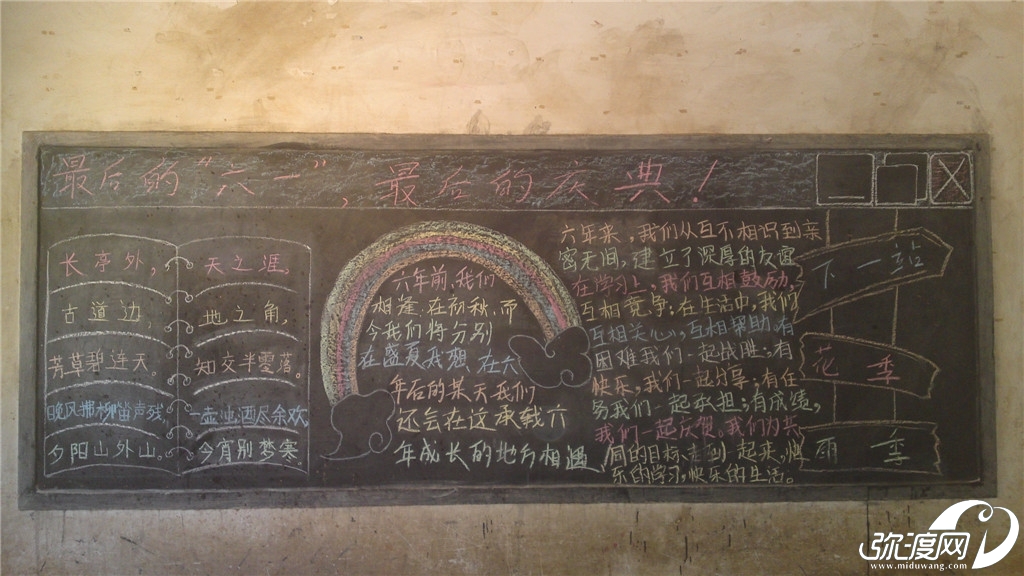 最后的“六一”，最后的庆典！
长亭外，
古道边，
芳草碧连天。
晚风拂柳笛声残，
夕阳山外山。
天之涯，
地之角，
知交半零落。
一壶浊酒尽余欢
今宵别梦寒
六年前，我们
相逢在初秋，而
今我们将分别
在盛夏我想，在六
年后的某天我们
还会在这承载六
年成长的地方相遇
六年来，我们从互不相识到亲
密无间，建立了深厚的友谊
在学习上，我们互相鼓励，
互相竞争；在生活中，我们
互相关心，互相帮助，有
困难我们一起战胜；有
快乐，我们一起分享；有任
务我们一起承担；有成绩，
我们一起庆贺。我们为共
同的目标走到一起来，快
乐的学习，快乐的生活。
下一站
花季
雨季
弥渡网
www.miduwang.com